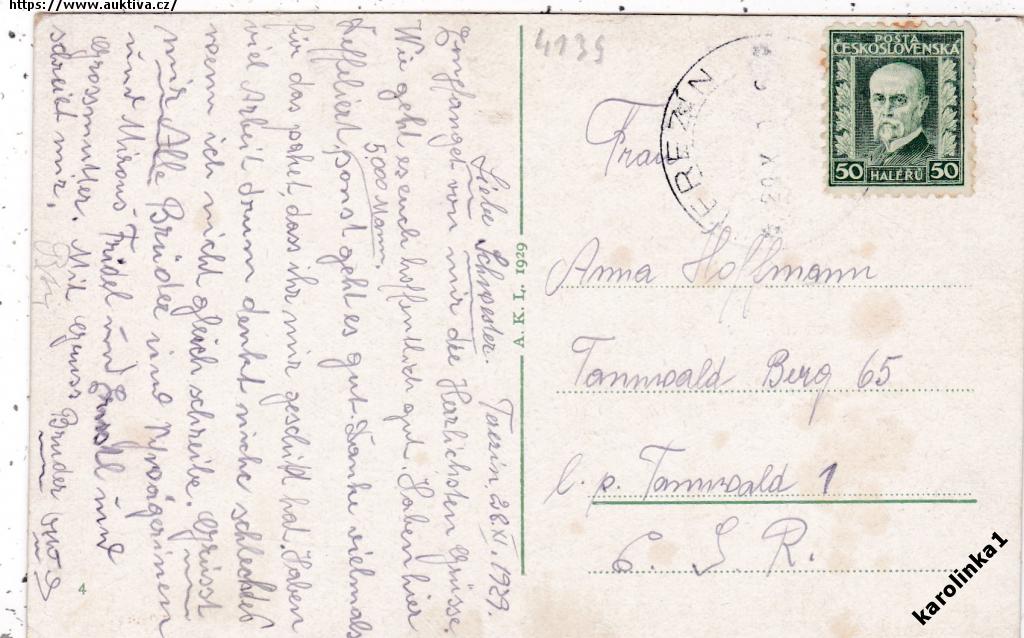 https://www.auktiva.cz/
4139
POŠTA
ČESKOSLOVENSKA
50 HALÉŘŮ 50
TEREZÍN
Frau
Anna Hoffmann
Tannwald Berg 65
l. p. Tannwald 1
Č. S. R.
A. K. L. 1929
Terezin, 28. XI. 1929.
Liebe Schwester.
Empfanget von mir die Herzlichsten Grüsse.
Wie geht es euch hoffentlich gut. Haben hier
5000 Mann.
sonst geht es gut. Danke vielmals
für das paket, dass ihr mir geschickt hat. Haben
viel Arbeit drum denkt nichs schlechtes
wenn ich nicht gleich schreibe. Grüsst
mir Alle Brüder und
und Fridel und und
Grossmutter. Mit Gruss Bruder
schreibt mir.
4
karolinka1